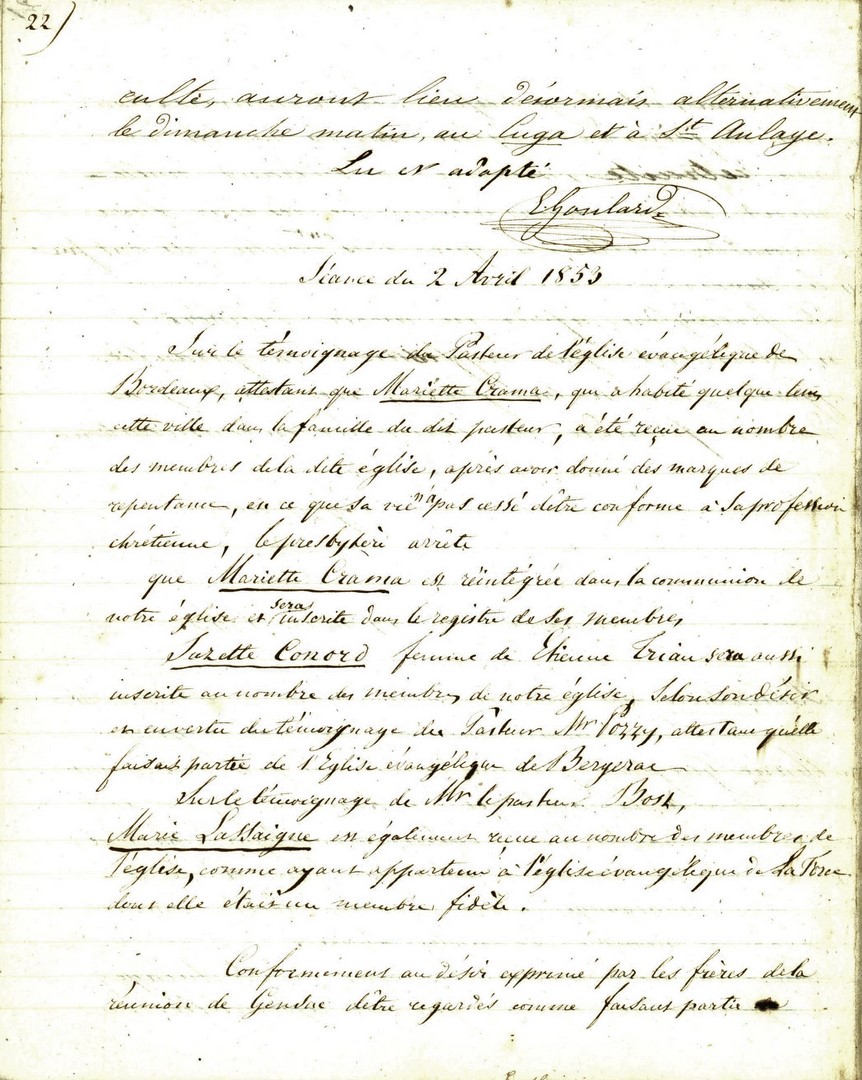 22)
culte, auront lieu désormais alternativement
le dimanche matin, au Cuga et à St Aulaye.
Lu et adopté
EGoulard
Séance du 2 Avril 1853
Sur le témoignage du Pasteur de l'église évangélique de
Bordeaux, attestant que Mariette Crama, qui a habité quelque tems
cette ville dans la famille du dit pasteur, a été reçue au nombre
des membres de la dite église, après avoir donné des marques de
repentance, en ce que sa vie n'a pas cessé d'être conforme à sa profession
chrétienne, le presbytère arrête
que Mariette Crama est réintégrée dans la communion de
notre église et sera inscrite dans le registre de ses membres
Suzette Conord femme de Etienne Trian sera aussi
inscrite au nombre des membres de notre église, selon son désir
et en vertu du témoignage du Pasteur Mr Pozzy, attestant qu'elle
faisait partie de l'Eglise évangélique de Bergerac
Sur le témoignage de Mr le pasteur Bost,
Marie Lassaigne est également reçue au nombre des membres de
l'église, comme ayant appartenu à l'église évangélique de La Force
dont elle était un membre fidèle.
Conformement au désir exprimé par les frères de la
réunion de Gensac d'être regardés comme faisant partie